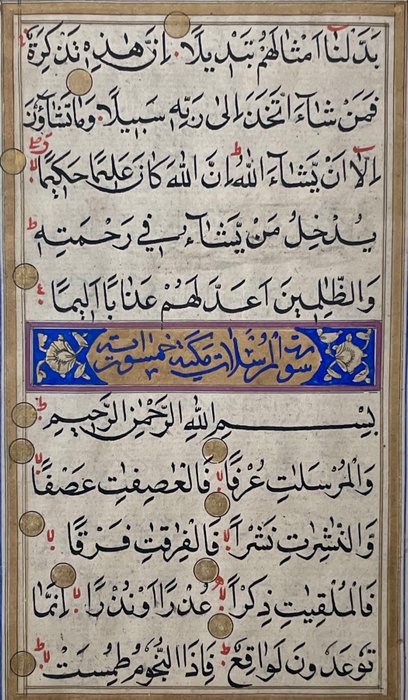 بَدَّلْنَا اَمْثَالَهُمْ تَبْدِيلًا اِنَّ هٰذِهِ تَذْكِرَةٌ
فَمَنْ شَاءَ اتَّخَذَ اِلٰى رَبِّهِ سَبِيلًا وَمَا تَشَاؤُنَ
اِلَّا اَنْ يَشَاءَ اللّٰهُ اِنَّ اللّٰهَ كَانَ عَلِيمًا حَكِيمًا
يُدْخِلُ مَنْ يَشَاءُ فِي رَحْمَتِهِ
وَالظَّالِمِينَ اَعَدَّ لَهُمْ عَذَابًا اَلِيمًا
سورت المرسلات مكية خمسون اية
بِسْمِ اللّٰهِ الرَّحْمٰنِ الرَّحِيمِ
وَالْمُرْسَلٰتِ عُرْفًا فَالْعٰصِفٰتِ عَصْفًا
وَالنّٰشِرٰتِ نَشْرًا فَالْفٰرِقٰتِ فَرْقًا
فَالْمُلْقِيٰتِ ذِكْرًا عُذْرًا اَوْ نُذْرًا اِنَّمَا
تُوعَدُونَ لَوَاقِعٌ فَاِذَا النُّجُومُ طُمِسَتْ